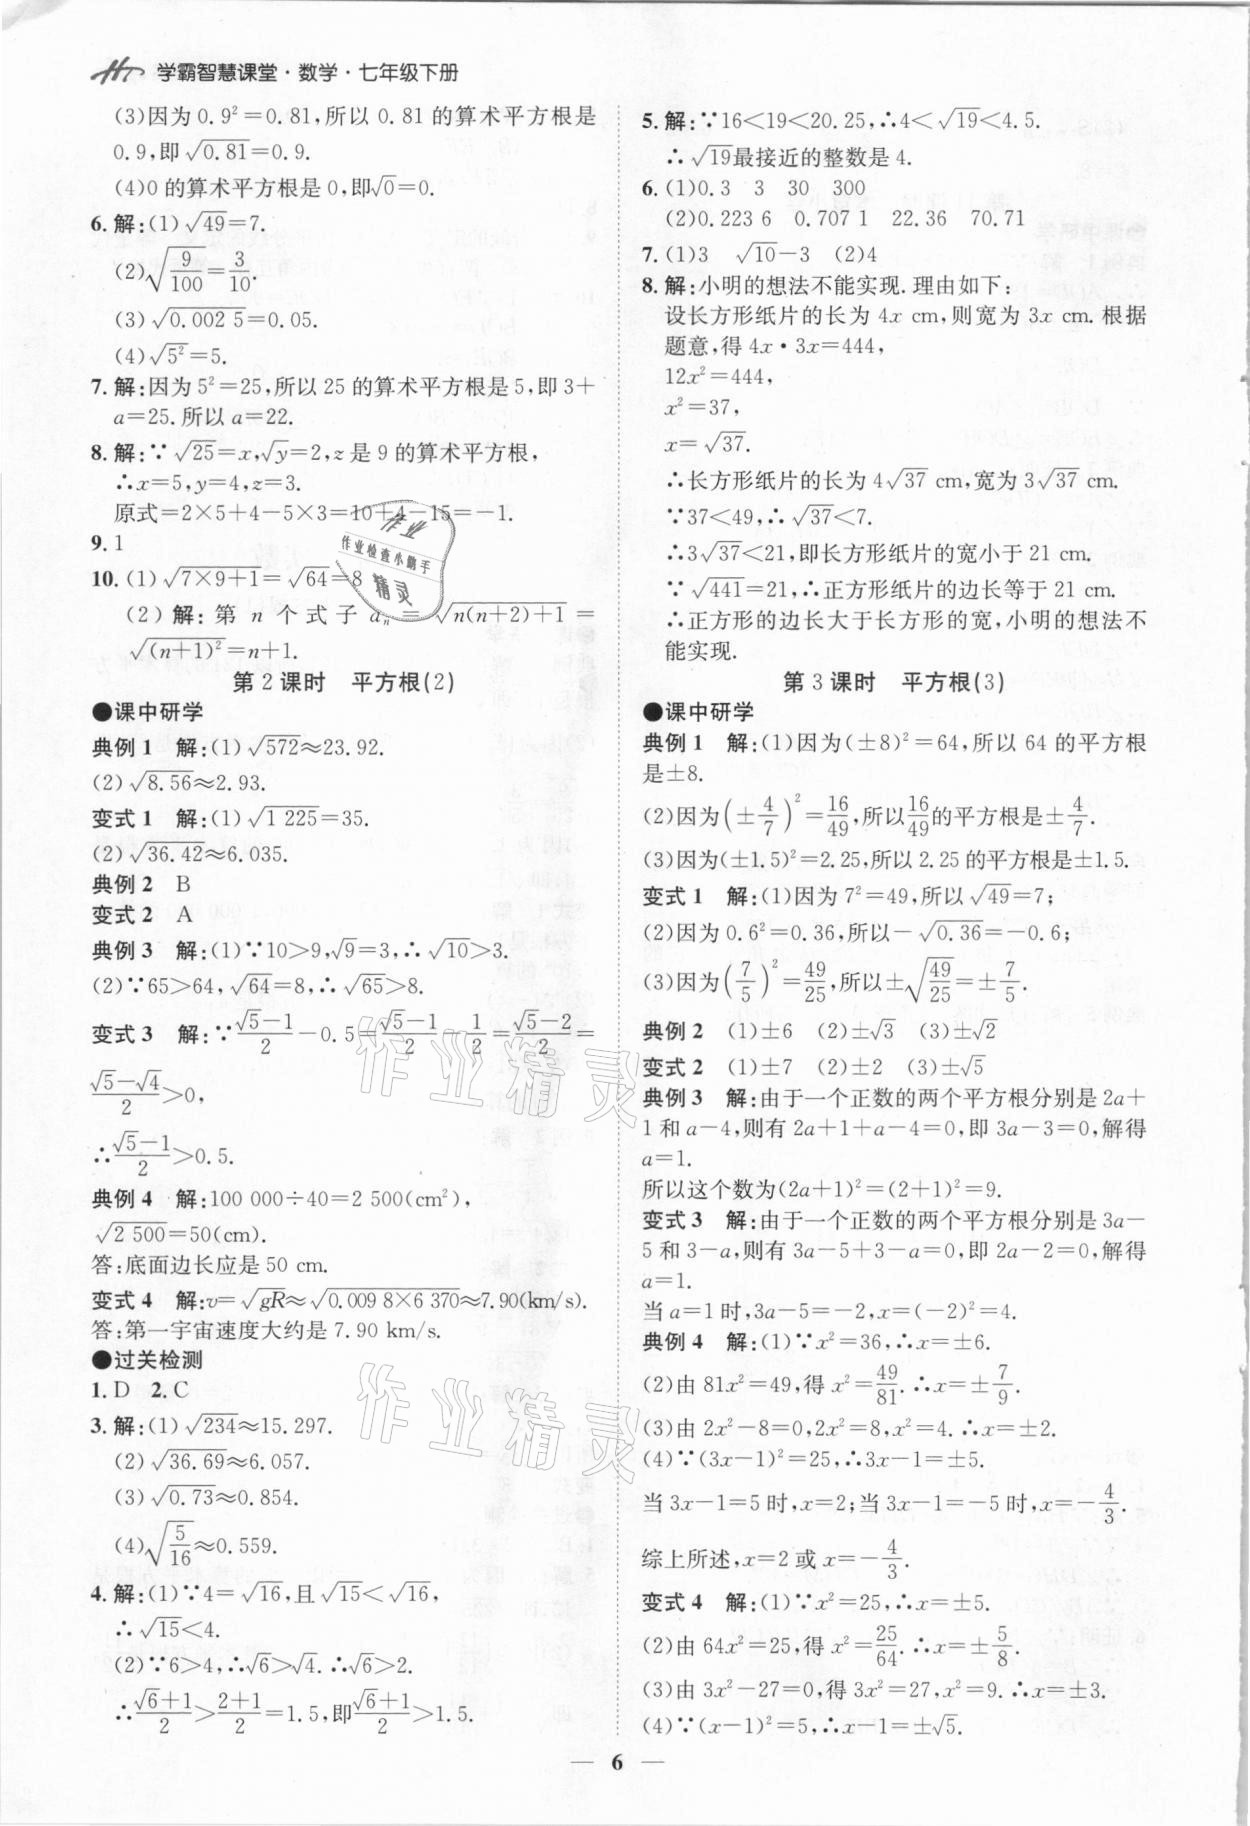 学霸智慧课堂·数学·七年级下册
(3)因为0.9²=0.81,所以0.81的算术平方根是
0.9,即√0.81=0.9.
(4)0的算术平方根是0,即√0=0.
6.解:(1)√49=7.
(2)√(9/100)=3/10.
(3)√0.002 5=0.05.
(4)√5²=5.
7.解:因为5²=25,所以25的算术平方根是5,即3+
a=25.所以a=22.
8.解:∵√25=x,√y=2,z是9的算术平方根,
∴x=5,y=4,z=3.
原式=2×5+4-5×3=10+4-15=-1.
9.1
10.(1)√(7×9+1)=√64=8
(2)解:第n个式子aₙ=√(n(n+2)+1)=
√(n+1)²=n+1.
第2课时 平方根(2)
●课中研学
典例1 解:(1)√572≈23.92.
(2)√8.56≈2.93.
变式1 解:(1)√1 225=35.
(2)√36.42≈6.035.
典例2 B
变式2 A
典例3 解:(1)∵10>9,√9=3,∴√10>3.
(2)∵65>64,√64=8,∴√65>8.
变式3 解:∵(√5-1)/2-0.5=(√5-1)/2-1/2=(√5-2)/2=
(√5-√4)/2>0,
∴(√5-1)/2>0.5.
典例4 解:100 000÷40=2 500(cm²),
√2 500=50(cm).
答:底面边长应是50 cm.
变式4 解:v=√gR≈√(0.009 8×6 370)≈7.90(km/s).
答:第一宇宙速度大约是7.90 km/s.
●过关检测
1.D 2.C
3.解:(1)√234≈15.297.
(2)√36.69≈6.057.
(3)√0.73≈0.854.
(4)√(5/16)≈0.559.
4.解:(1)∵4=√16,且√15<√16,
∴√15<4.
(2)∵6>4,∴√6>√4.∴√6>2.
∴(√6+1)/2>(2+1)/2=1.5,即(√6+1)/2>1.5.
5.解:∵16<19<20.25,∴4<√19<4.5.
∴√19最接近的整数是4.
6.(1)0.3 3 30 300
(2)0.223 6 0.707 1 22.36 70.71
7.(1)3 √10-3 (2)4
8.解:小明的想法不能实现.理由如下:
设长方形纸片的长为4x cm,则宽为3x cm.根据
题意,得4x·3x=444,
12x²=444,
x²=37,
x=√37.
∴长方形纸片的长为4√37 cm,宽为3√37 cm.
∵37<49,∴√37<7.
∴3√37<21,即长方形纸片的宽小于21 cm.
∵√441=21,∴正方形纸片的边长等于21 cm.
∴正方形的边长大于长方形的宽,小明的想法不
能实现.
第3课时 平方根(3)
●课中研学
典例1 解:(1)因为(±8)²=64,所以64的平方根
是±8.
(2)因为(±4/7)²=16/49,所以16/49的平方根是±4/7.
(3)因为(±1.5)²=2.25,所以2.25的平方根是±1.5.
变式1 解:(1)因为7²=49,所以√49=7;
(2)因为0.6²=0.36,所以-√0.36=-0.6;
(3)因为(7/5)²=49/25,所以±√(49/25)=±7/5.
典例2 (1)±6 (2)±√3 (3)±√2
变式2 (1)±7 (2)±2 (3)±√5
典例3 解:由于一个正数的两个平方根分别是2a+
1和a-4,则有2a+1+a-4=0,即3a-3=0,解得
a=1.
所以这个数为(2a+1)²=(2+1)²=9.
变式3 解:由于一个正数的两个平方根分别是3a-
5和3-a,则有3a-5+3-a=0,即2a-2=0,解得
a=1.
当a=1时,3a-5=-2,x=(-2)²=4.
典例4 解:(1)∵x²=36,∴x=±6.
(2)由81x²=49,得x²=49/81.∴x=±7/9.
(3)由2x²-8=0,2x²=8,x²=4.∴x=±2.
(4)∵(3x-1)²=25,∴3x-1=±5.
当3x-1=5时,x=2;当3x-1=-5时,x=-4/3.
综上所述,x=2或x=-4/3.
变式4 解:(1)∵x²=25,∴x=±5.
(2)由64x²=25,得x²=25/64.∴x=±5/8.
(3)由3x²-27=0,得3x²=27,x²=9.∴x=±3.
(4)∵(x-1)²=5,∴x-1=±√5.
— 6 —
作业
作业检查小助手
精灵
作业精灵
作业精灵